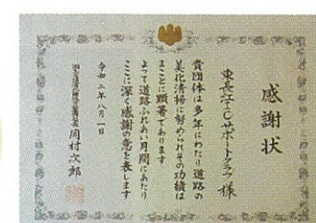 感謝状
東長沢ECサポートクラブ 様
貴団体は多年にわたり道路の
美化清掃に努められその功績は
まことに顕著であります
よって道路ふれあい月間にあたり
ここに深く感謝の意を表します
令和二年八月一日
国土交通省道路局長 岡村次郎